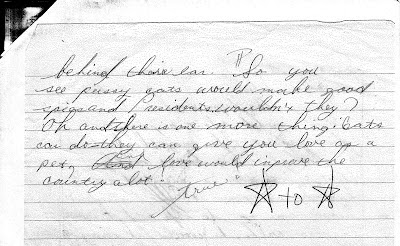 behind thire ear. ¶ So you
see pussy cats would make good
spies and Presidents. wouldn't they?
Oh and there is one more thing: Cats
can do - they can give you love as a
pet, And love would improve the
country a lot!
true
☆ to ☆